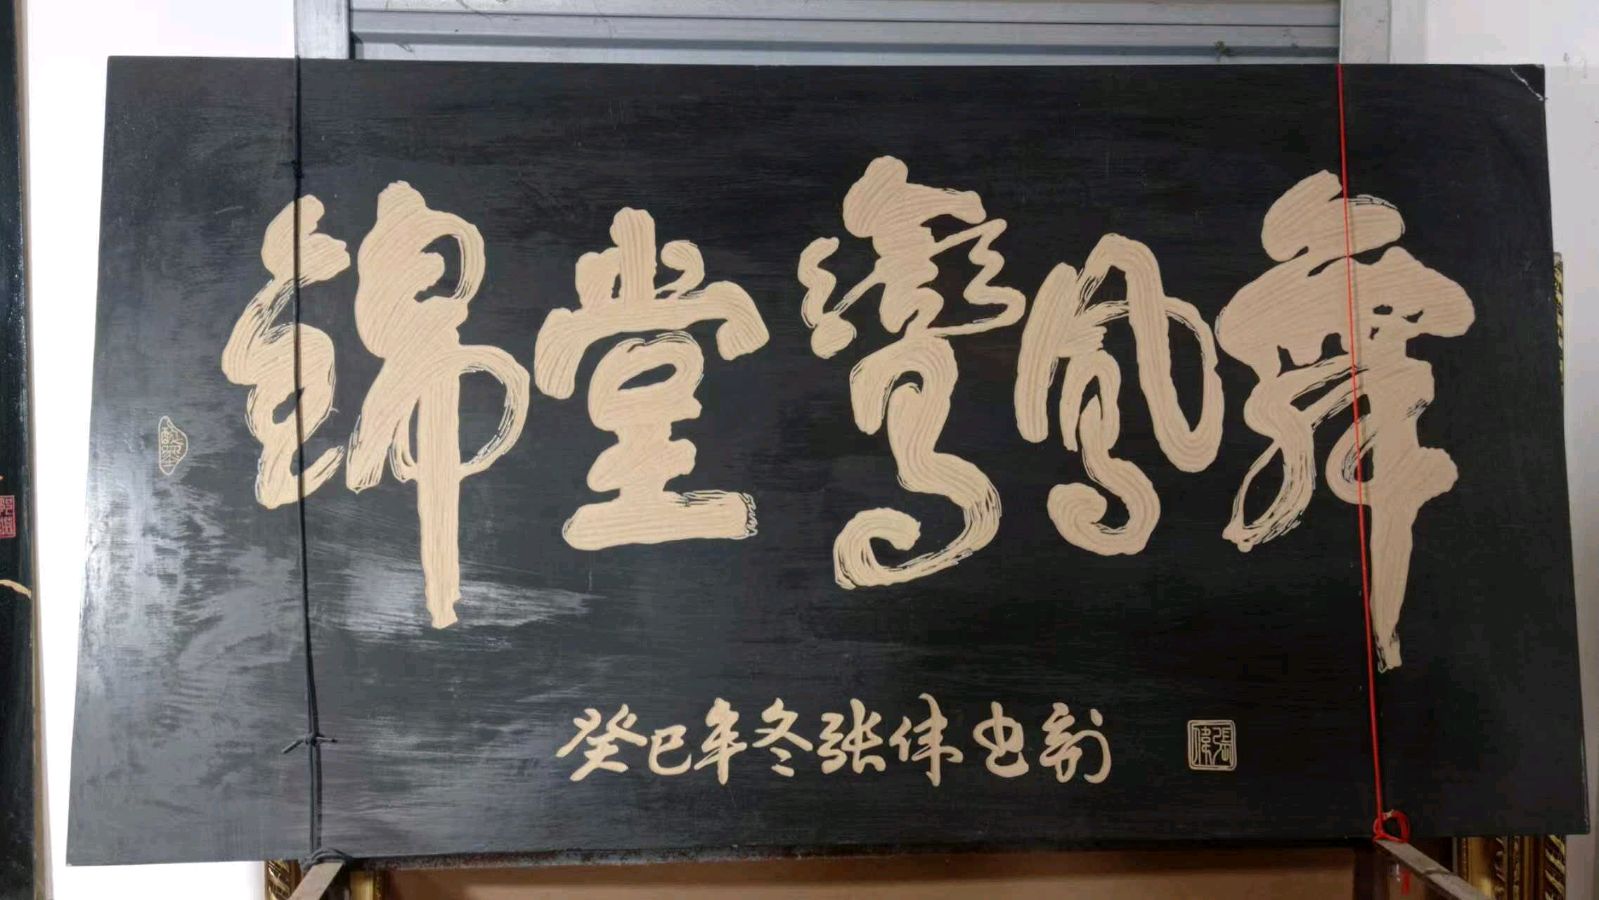 锦堂鸾凤舞
癸巳年冬张伟书刻
張偉